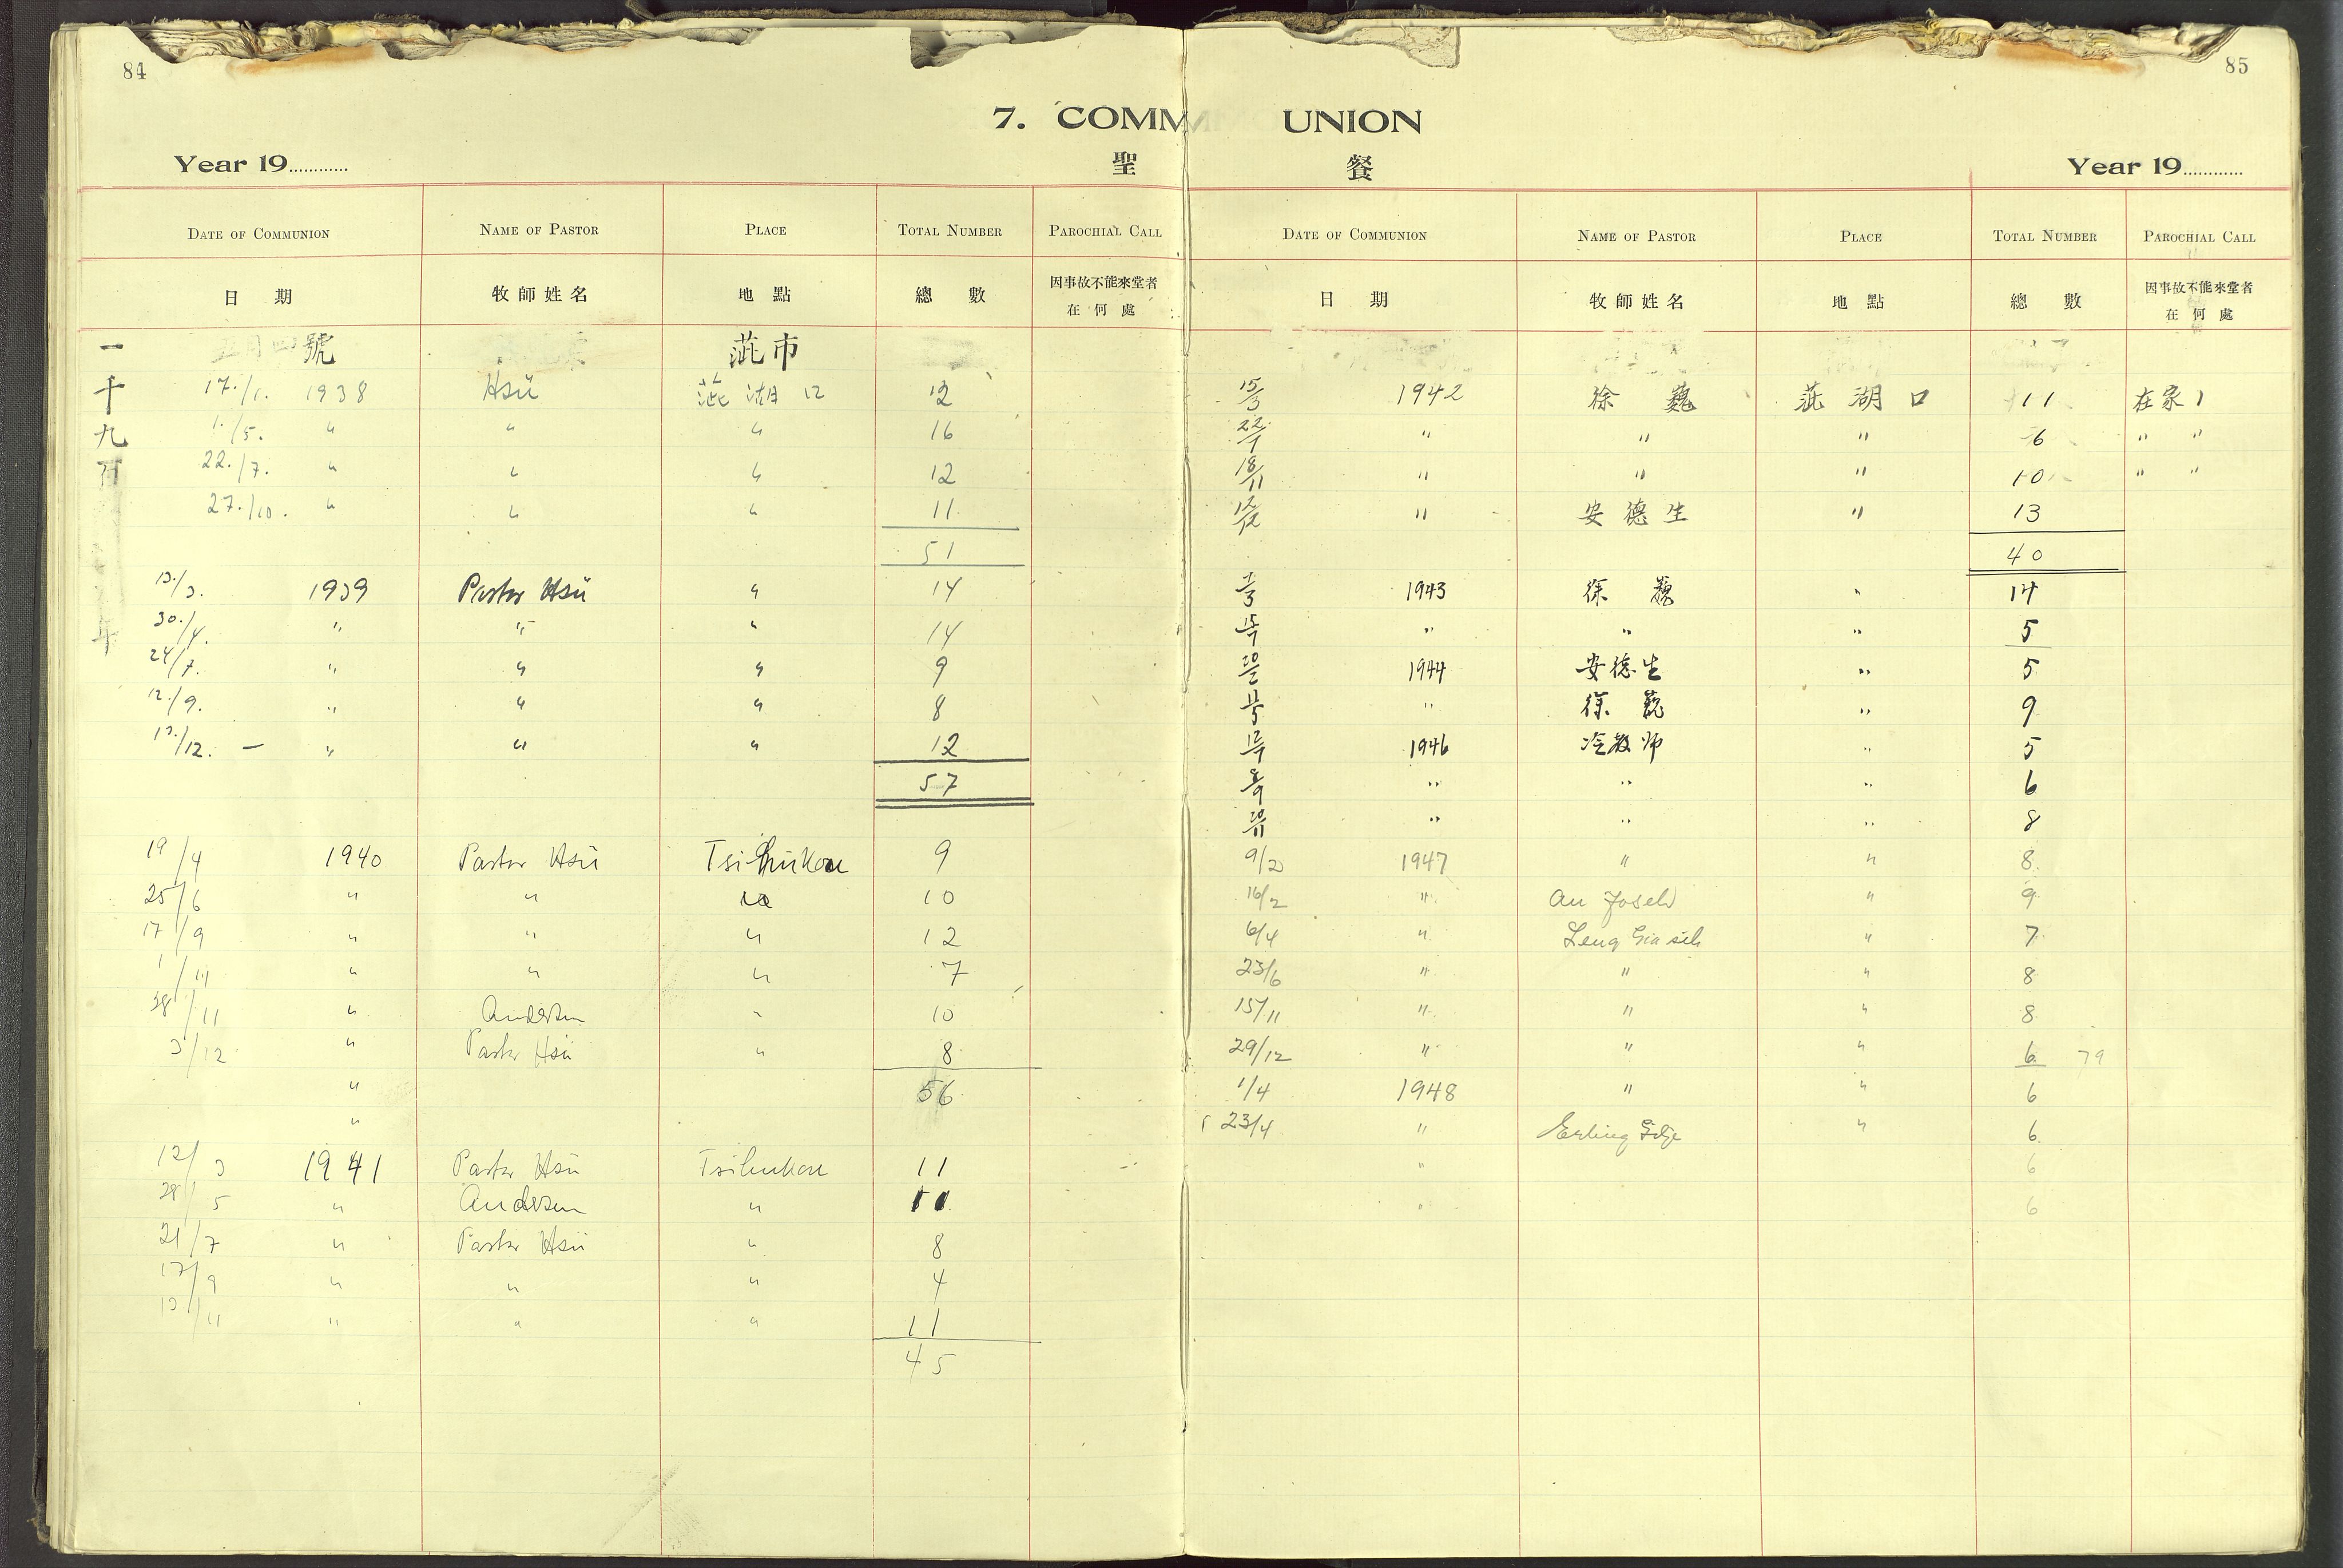 84
7. COMM
Year 19............
聖
DATE OF COMMUNION NAME OF PASTOR PLACE TOTAL NUMBER PAROCHIAL CALL
日 期 牧師姓名 地 點 總 數 因事故不能來堂者
在何處
一 五月四號 茈市
千 17./1. 1938 Hsü 茈湖口 12
九 1./5. " " " 16
百 22./7. " " " 12
27./10. " " " 11
51
13./3. 1939 Pastor Hsü " 14
年 30./4. " " " 14
24/7. " " " 9
12./9. " " " 8
13./12. — " " " 12
57
19/4 1940 Pastor Hsü Tsihukou 9
25/6 " " " 10
17/9 " " " 12
1/11 " " " 7
28/11 " Andersen " 10
3/12 " Pastor Hsü " 8
" 56
"
12/3 1941 Pastor Hsü Tsihukou 11
28/5 " Andersen " 11
21/7 " Pastor Hsü " 8
17/9 " " " 4
13/11 " " " 11
45
85
UNION
Year 19............
餐
DATE OF COMMUNION NAME OF PASTOR PLACE TOTAL NUMBER PAROCHIAL CALL
日 期 牧師姓名 地 點 總 數 因事故不能來堂者
在何處
15/3 1942 徐 巍 茈湖口 11 在家1
22/7 " " " 6 " "
18/11 " " " 10 " "
12/12 " 安德生 " 13
40
1943 徐 巍 " 14
" " " 5
1944 安德生 " 5
" 徐 巍 " 9
1946 冷教师 " 5
8/9 " " " 6
20/11 " " " 8
9/2 1947 " " 8
16/2 " An Joseh " 9
6/4 " Leng Giasih " 7
23/6 " " " 8
15/11 " " " 8
29/12 " " " 6 79
1/4 1948 " " 6
23/4 " Erling " 6
" 6
" 6